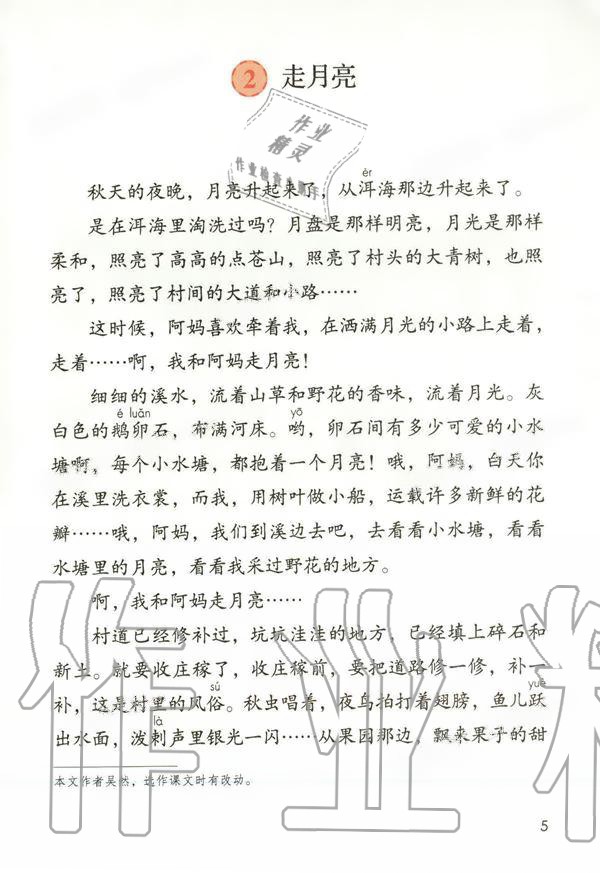 2 走月亮
作业
精灵
作业检查小助手
ěr
秋天的夜晚，月亮升起来了，从洱海那边升起来了。
是在洱海里淘洗过吗？月盘是那样明亮，月光是那样
柔和，照亮了高高的点苍山，照亮了村头的大青树，也照
亮了，照亮了村间的大道和小路……
这时候，阿妈喜欢牵着我，在洒满月光的小路上走着，
走着……啊，我和阿妈走月亮！
细细的溪水，流着山草和野花的香味，流着月光。灰
é luǎn yō
白色的鹅卵石，布满河床。哟，卵石间有多少可爱的小水
塘啊，每个小水塘，都抱着一个月亮！哦，阿妈，白天你
在溪里洗衣裳，而我，用树叶做小船，运载许多新鲜的花
瓣……哦，阿妈，我们到溪边去吧，去看看小水塘，看看
水塘里的月亮，看看我采过野花的地方。
啊，我和阿妈走月亮……
村道已经修补过，坑坑洼洼的地方，已经填上碎石和
新土。就要收庄稼了，收庄稼前，要把道路修一修，补一
sú yuè
补，这是村里的风俗。秋虫唱着，夜鸟拍打着翅膀，鱼儿跃
là
出水面，泼剌声里银光一闪……从果园那边，飘来果子的甜
本文作者吴然，选作课文时有改动。
5
作业精